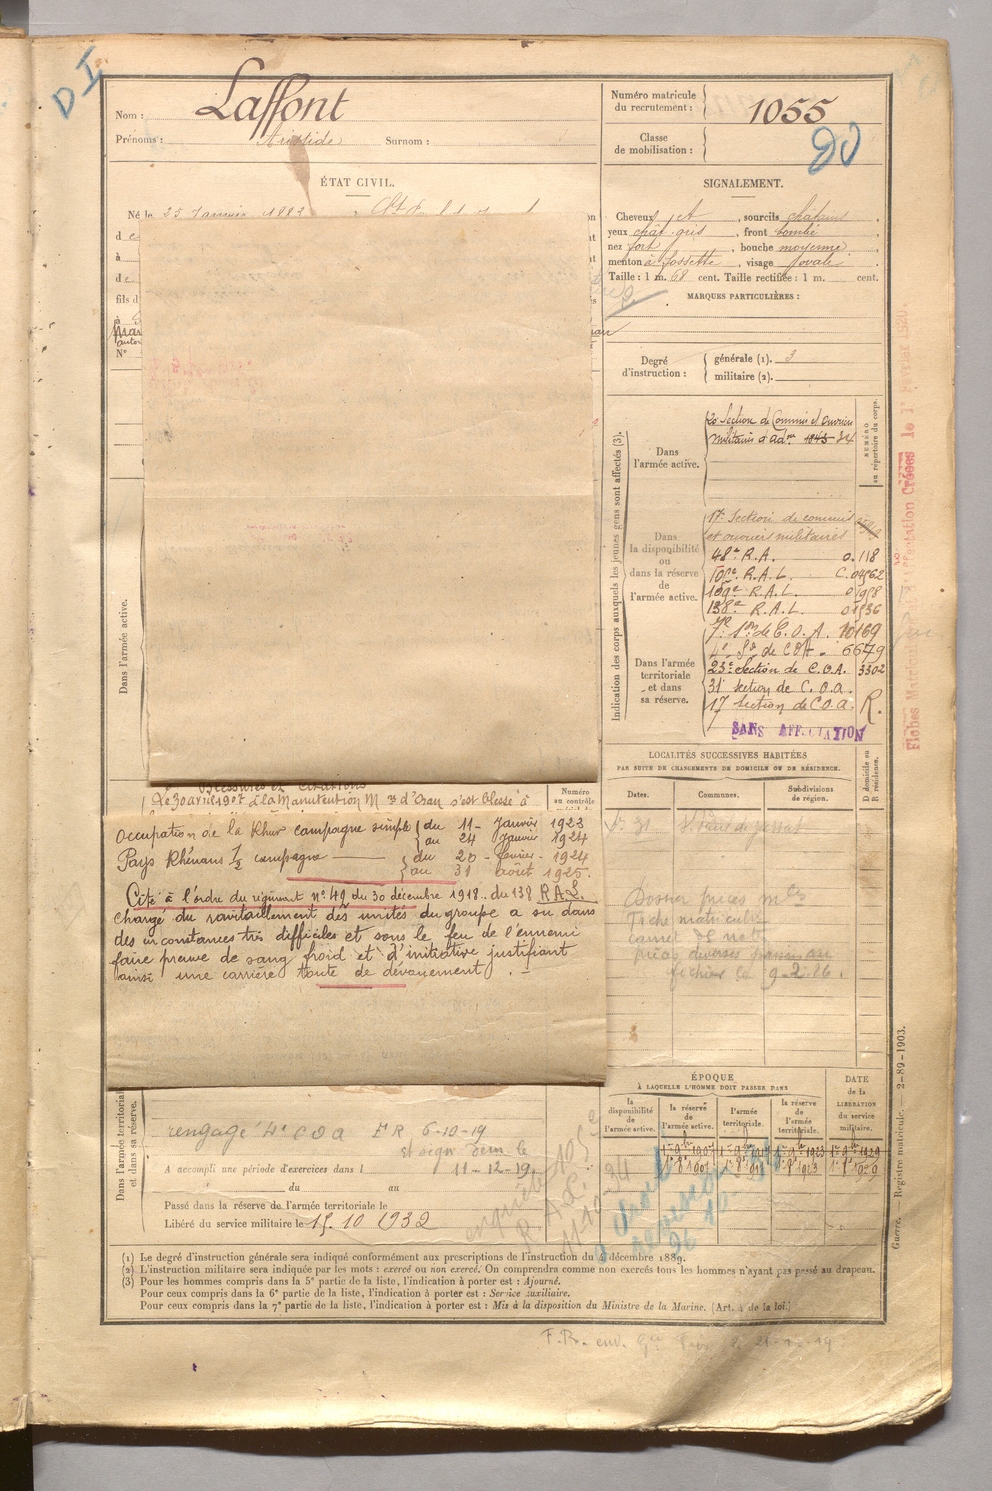 D I
Nom : Laffont
Prénoms : Aristide Surnom :
Numéro matricule
du recrutement : 1055
Classe
de mobilisation :
ÉTAT CIVIL.
Né le 25 Janvier 1882
SIGNALEMENT.
Cheveux , sourcils châtains ,
yeux chât. gris , front bombé
nez fort , bouche moyenne ,
menton à fossette , visage ovale .
Taille : 1 m. 68 cent. Taille rectifiée : 1 m. cent.
MARQUES PARTICULIÈRES :
N°
Degré
d'instruction :
générale (1). 3
militaire (2).
Indication des corps auxquels les jeunes gens sont affectés (3).
Dans
l'armée active.
20 Section de Commis et ouvriers
militaires d'adon 1843 84
NUMÉRO
au répertoire du corps.
Dans
la disponibilité
ou
dans la réserve
de
l'armée active.
17e Section de commis
et ouvriers militaires
48e R.A. 0.118
105e R.A.L. C.04962
109e R.A.L. 01958
138e R.A.L. 01536
Dans l'armée
territoriale
et dans
sa réserve.
7e Son de C.O.A. 10169
4e Son de COA. 6679
23e Section de C.O.A. 3302
31 section de C.O.A.
17 Section de C.O.A. R.
SANS AFFECTATION
Dans l'armée active.
Fiches Matricules d'affectation Créées le 1er 1920.
LOCALITÉS SUCCESSIVES HABITÉES
PAR SUITE DE CHANGEMENTS DE DOMICILE OU DE RÉSIDENCE.
Dates. Communes. Subdivisions
de région.
D domicile ou
R résidence.
Blessures et Citations
Le 30 avril 1907 à la Manutention Mre d'Oran s'est blessé à
Numéro
au contrôle
Occupation de la Rhur campagne simple du 11 - Janvier 1923
au 24 Janvier 1924
Pays Rhénans 1/2 campagne — du 20 - février - 1924
au 31 août 1925.
Cité à l'ordre du régiment n° 49 du 30 décembre 1918. du 138 R.A.L.
chargé du ravitaillement des unités du groupe a su dans
des circonstances très difficiles et sous le feu de l'ennemi
faire preuve de sang froid et d'initiative justifiant
ainsi une carrière toute de dévouement . -
Dossier pièces mles
Fiche matricule
carnet de notes
pièces diverses
fichier le 9-2.26.
Dans l'armée territoriale
et dans sa réserve.
rengagé 4e COA ER 6-10-19
11-12-19
A accompli une période d'exercices dans l
du au
Passé dans la réserve de l'armée territoriale le
Libéré du service militaire le 15.10 1932
enquête 105e
R.A.L.
ÉPOQUE
À LAQUELLE L'HOMME DOIT PASSER DANS
la
disponibilité
de
l'armée active.
la réserve
de
l'armée active.
l'armée
territoriale.
la réserve
de
l'armée
territoriale.
DATE
de la
LIBÉRATION
du service
militaire.
1er 9bre 1907 1er 9bre 1917 1er 9bre 1923 1er 9bre 1929
(1) Le degré d'instruction générale sera indiqué conformément aux prescriptions de l'instruction du 4 décembre 1889.
(2) L'instruction militaire sera indiquée par les mots : exercé ou non exercé. On comprendra comme non exercés tous les hommes n'ayant pas passé au drapeau.
(3) Pour les hommes compris dans la 5e partie de la liste, l'indication à porter est : Ajourné.
Pour ceux compris dans la 6e partie de la liste, l'indication à porter est : Service auxiliaire.
Pour ceux compris dans la 7e partie de la liste, l'indication à porter est : Mis à la disposition du Ministre de la Marine. (Art. 4 de la loi.)
Guerre. — Registre matricule. — 2-89-1903.